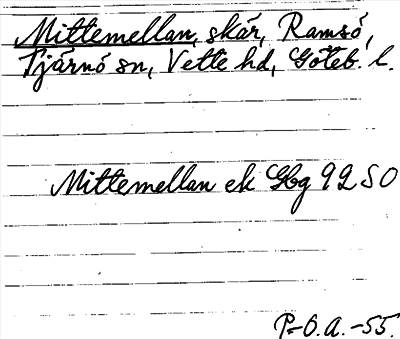 Mittemellan, skär, Ramsö,
Tjärnö sn, Vette hd, Göteb. l.
Mittemellan ek Gbg 92 SO
P-O.A.-55.